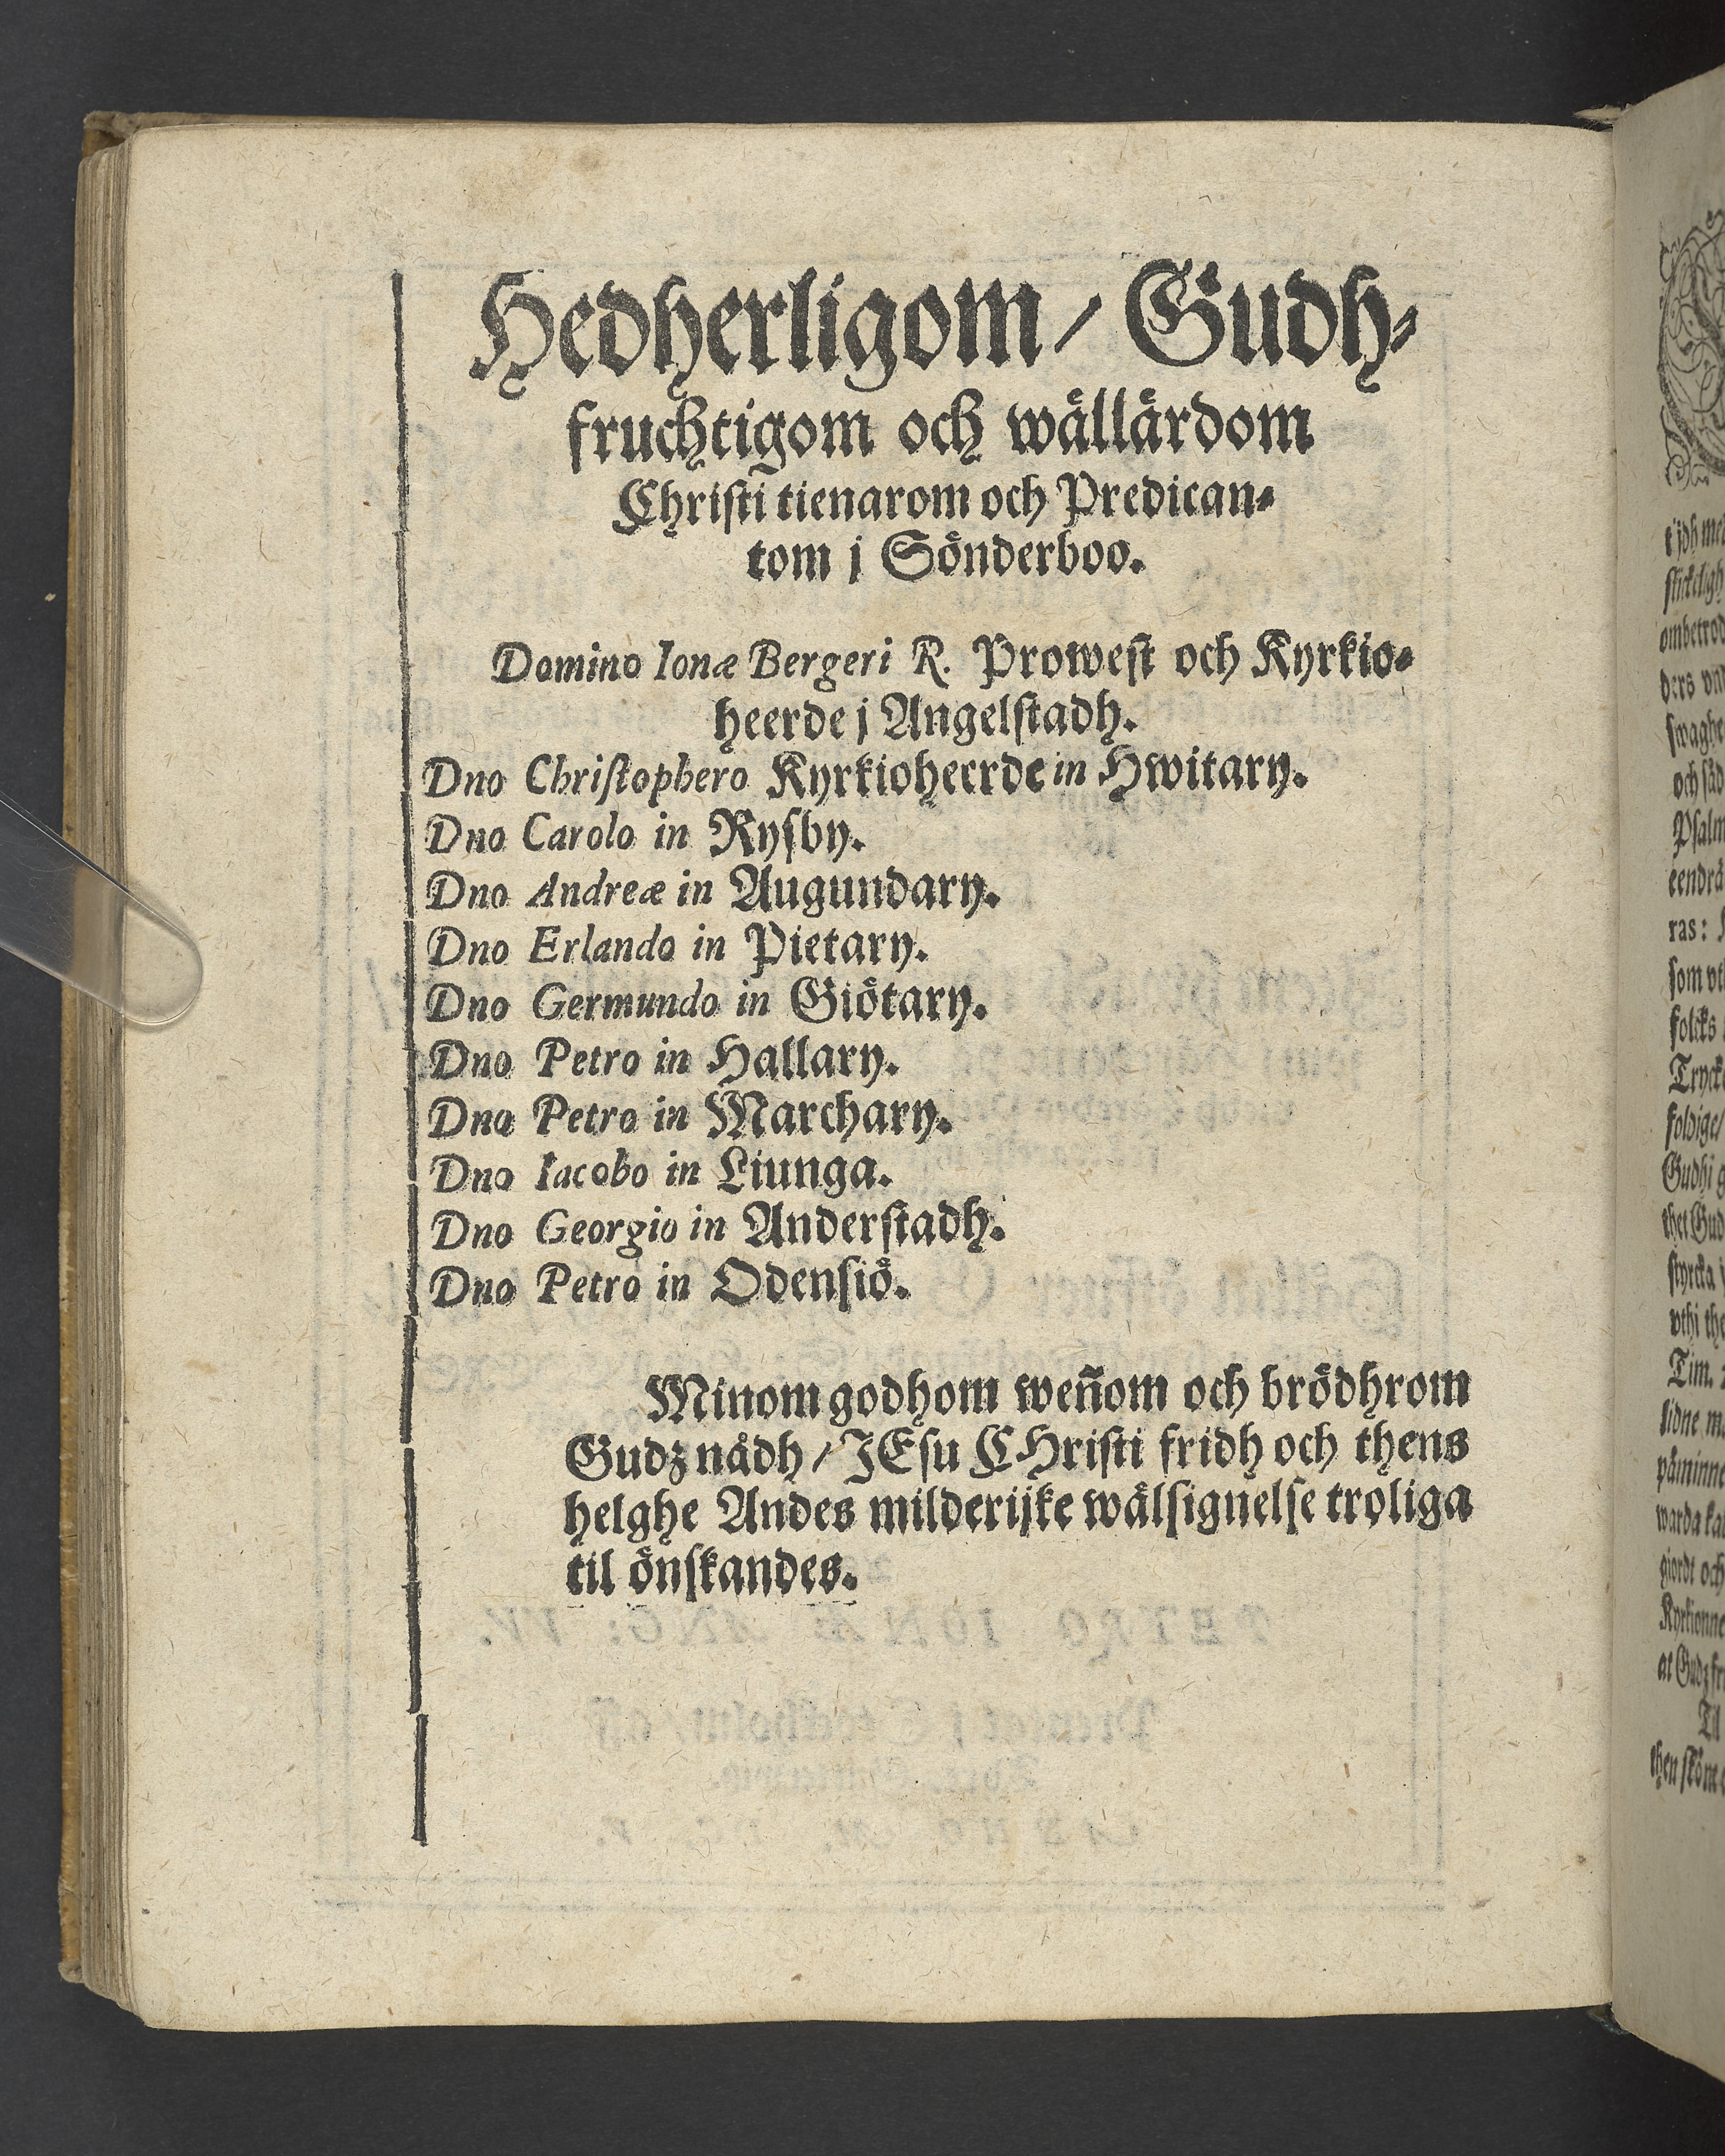 Hedherligom / Gudh⸗
fruchtigom och wållårdom
Christi tienarom och Predican⸗
tom j Sönderboo.
Domino Ionæ Bergeri R. Prowest och Kyrkio⸗
heerde j Angelstadh.
Dno Christophero Kyrkioheerde in Hwitary.
Dno Carolo in Rysby.
Dno Andreæ in Augundary.
Dno Erlando in Pietary.
Dno Germundo in Giötary.
Dno Petro in Hallary.
Dno Petro in Marchary.
Dno Iacobo in Liunga.
Dno Georgio in Anderstadh.
Dno Petro in Odensiö.
Minom godhom weñom och brödhrom
Gudz nådh / JEsu CHristi fridh och thens
helghe Andes milderijke wålsignelse troliga
til önskandes.